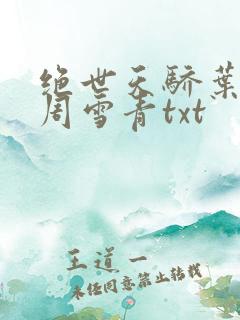 绝世天骄叶
周雪青txt
王道一
未经同意禁止转载